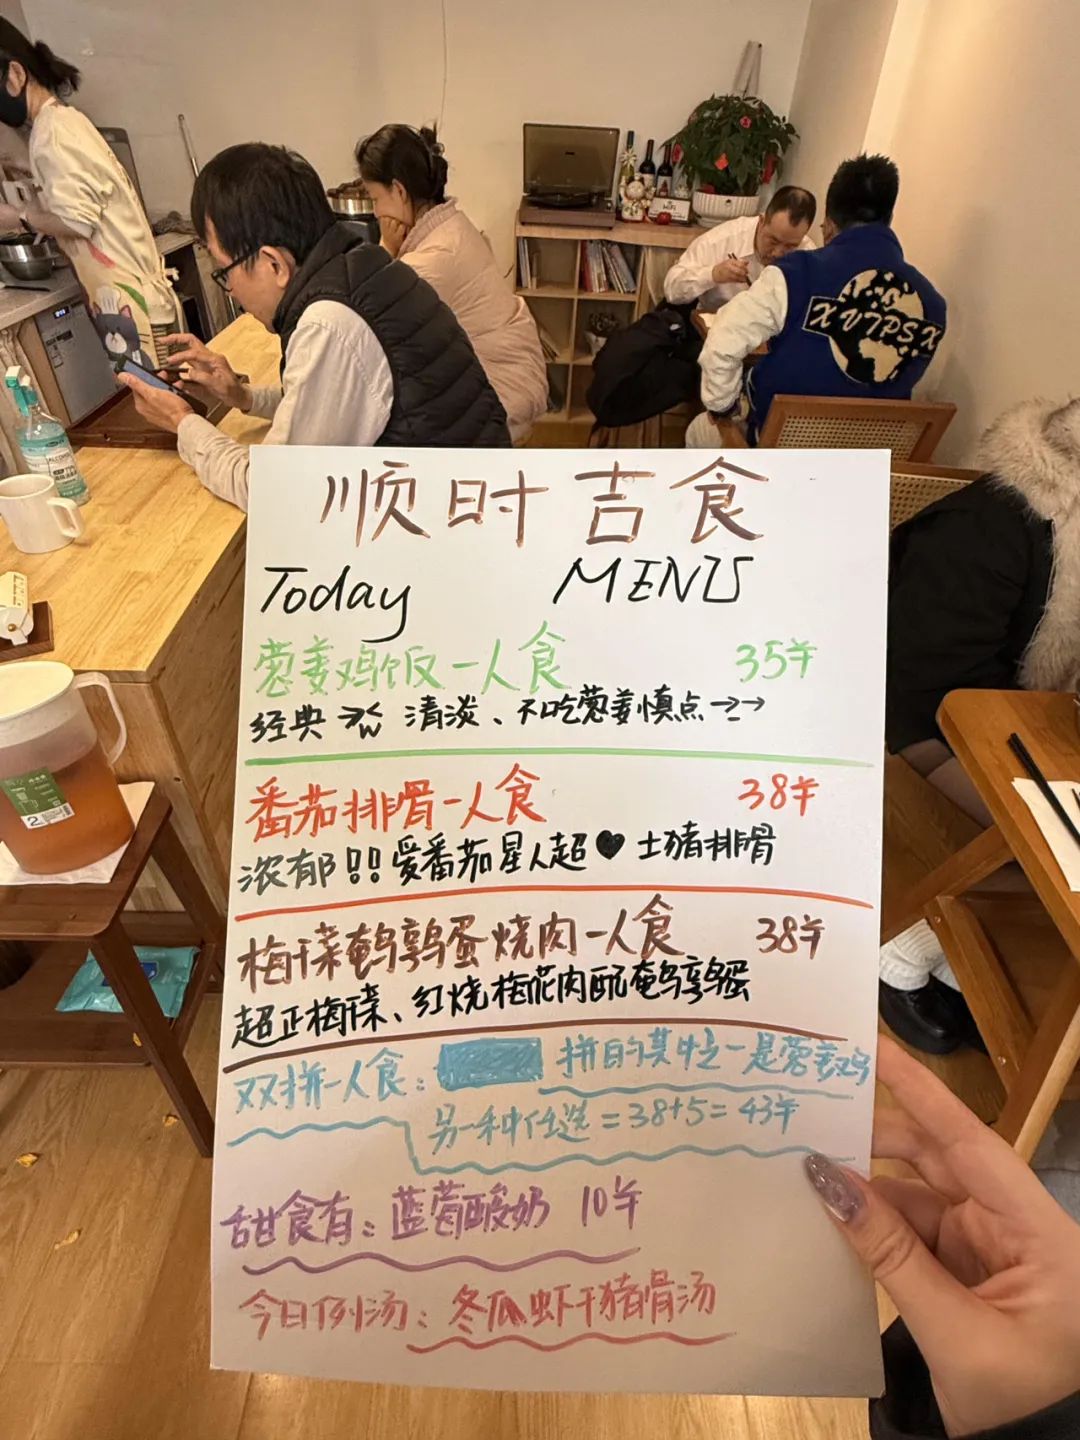 XVTPSX
顺时吉食
Today MENU
葱姜鸡饭一人食 35半
经典 清淡、不吃葱姜慎点
番茄排骨一人食 38半
浓郁!!爱番茄星人超♥土猪排骨
梅干菜鹌鹑蛋烧肉一人食 38半
超正梅干菜、红烧梅花肉配鹌鹑蛋
双拼一人食: 拼的其中之一是葱姜鸡
另一种任选=38+5=43半
甜食有:蓝莓酸奶 10半
今日例汤:冬瓜虾干猪骨汤